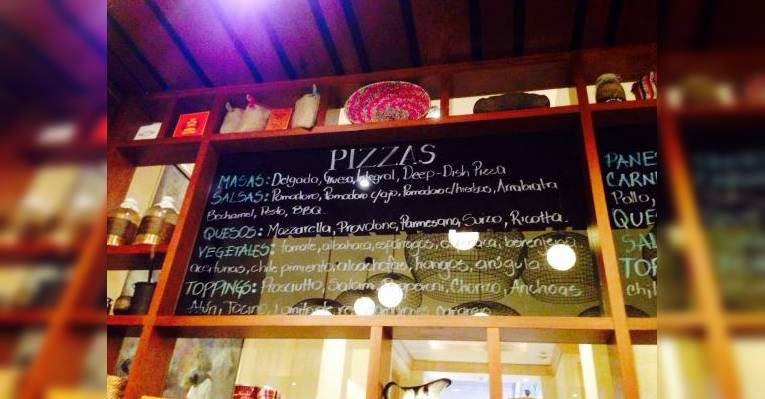 PIZZAS
MASAS: Delgado, Gruesa, Integral, Deep-Dish Pizza
SALSAS: Pomodoro, Pomodoro c/ajo, Pomodoro c/hierbas, Arrabiata
Bechamel, Pesto, BBQ.
QUESOS: Mozzarella, Provolone, Parmesano, Suizo, Ricotta.
VEGETALES: tomate, albahaca, espárragos, berenjena,
aceitunas, chile pimiento, alcachofas, hongos, arúgula
TOPPINGS: Prosciutto, Salami, Pepperoni, Chorizo, Anchoas
Atún, Tocino,
PANES
CARN
Pollo,
QUES
SAL
TOP
Chil